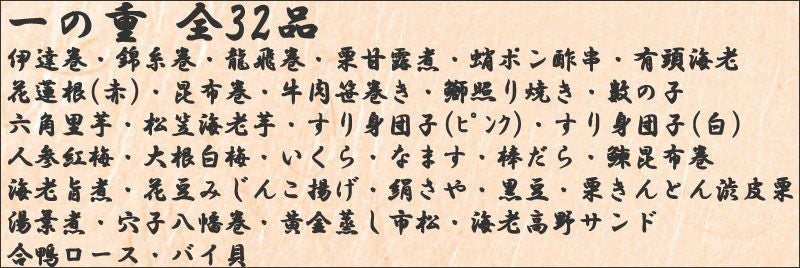 一の重 全32品
伊達巻・錦糸巻・龍飛巻・栗甘露煮・蛸ポン酢串・有頭海老
花蓮根(赤)・昆布巻・牛肉笹巻き・鰤照り焼き・数の子
六角里芋・松笠海老芋・すり身団子(ﾋﾟﾝｸ)・すり身団子(白)
人参紅梅・大根白梅・いくら・なます・棒だら・鰊昆布巻
海老旨煮・花豆みじんこ揚げ・絹さや・黒豆・栗きんとん渋皮栗
湯葉煮・穴子八幡巻・黄金蒸し市松・海老高野サンド
合鴨ロース・バイ貝